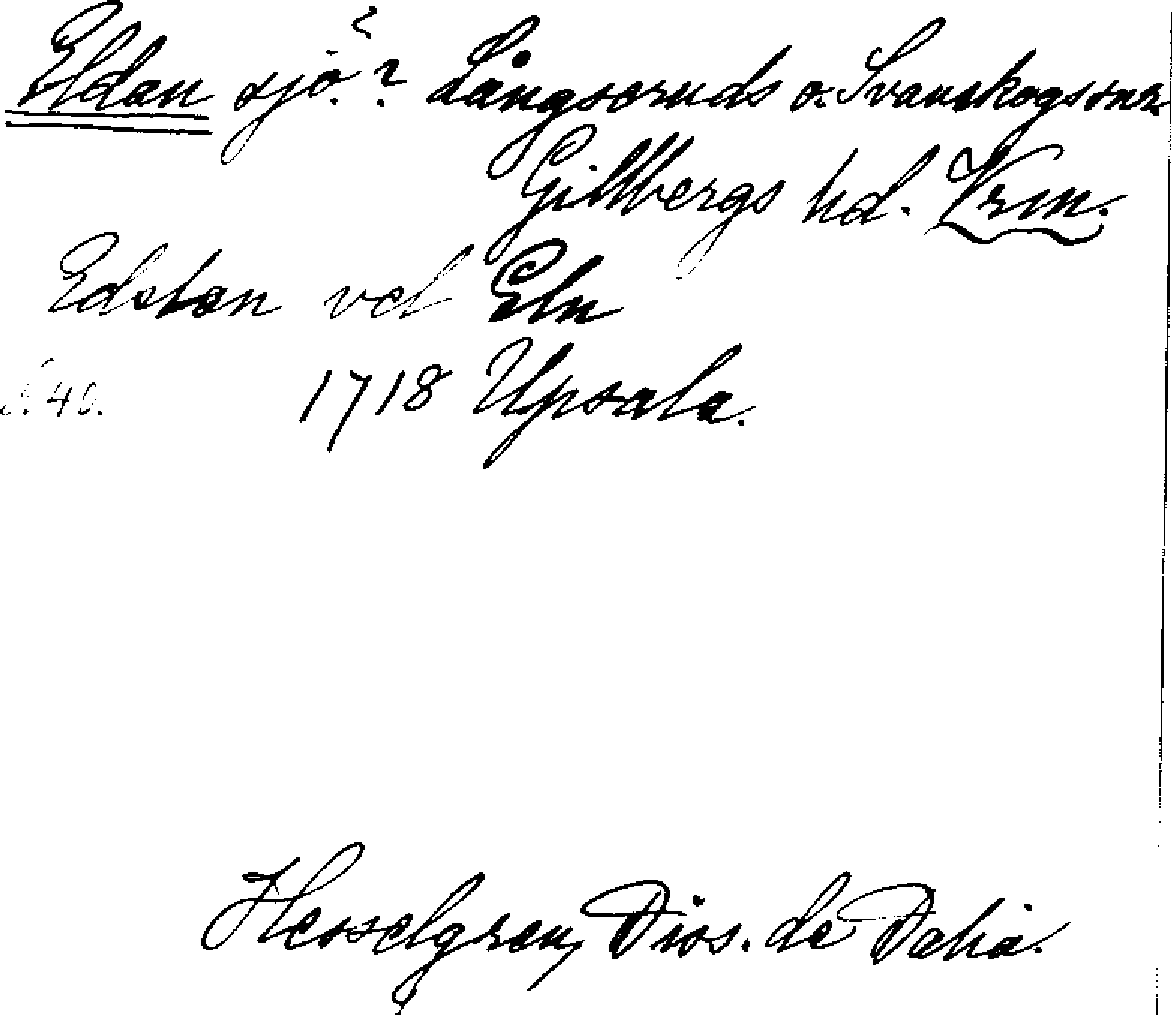 Eldan sjö? Långseruds o. Svanskogs snr
Gillbergs hd. Vrm.
Edslan vel Eln
s. 40. 1718 Upsala.
Hesselgren, Diss. de Dalia.